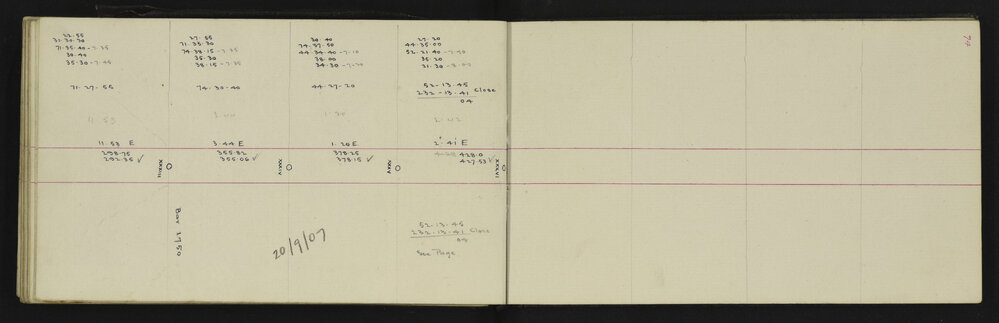 27.55
71.35.40 - 7.35
30.40
35.30 - 7.45
71.27.55
11.53
11.53 E
298.75
292.35 ✓
27.55
71.35.30
74.38.15 - 7.35
35.30
38.15 - 7.35
74.30.40
3.44 E
355.82
355.06 ✓
XXXIV
Bar 2750
30.40
74.37.50
44.34.40 - 7.10
38.00
34.30 - 7.20
44.27.20
1.20
1.20 E
378.25
378.15 ✓
XXXV
20/9/07
27.20
44.35.00
52.21.40 - 7.40
35.20
21.20 - 8.00
52-13.45
232-13.41 Close
04
2.42
2.41 E
428.0
427.53 ✓
XXXVI
52.13.45
232.13.41 Close
04
See Page
74